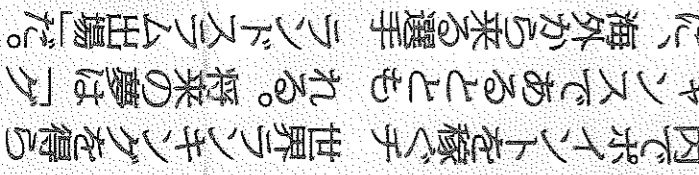 内でポイントを稼ぐチ
ャンスであるととも
に、海外から来る選手
世界ランキングを得ら
れる。将来の夢は「グ
ランドスラム出場」だ。